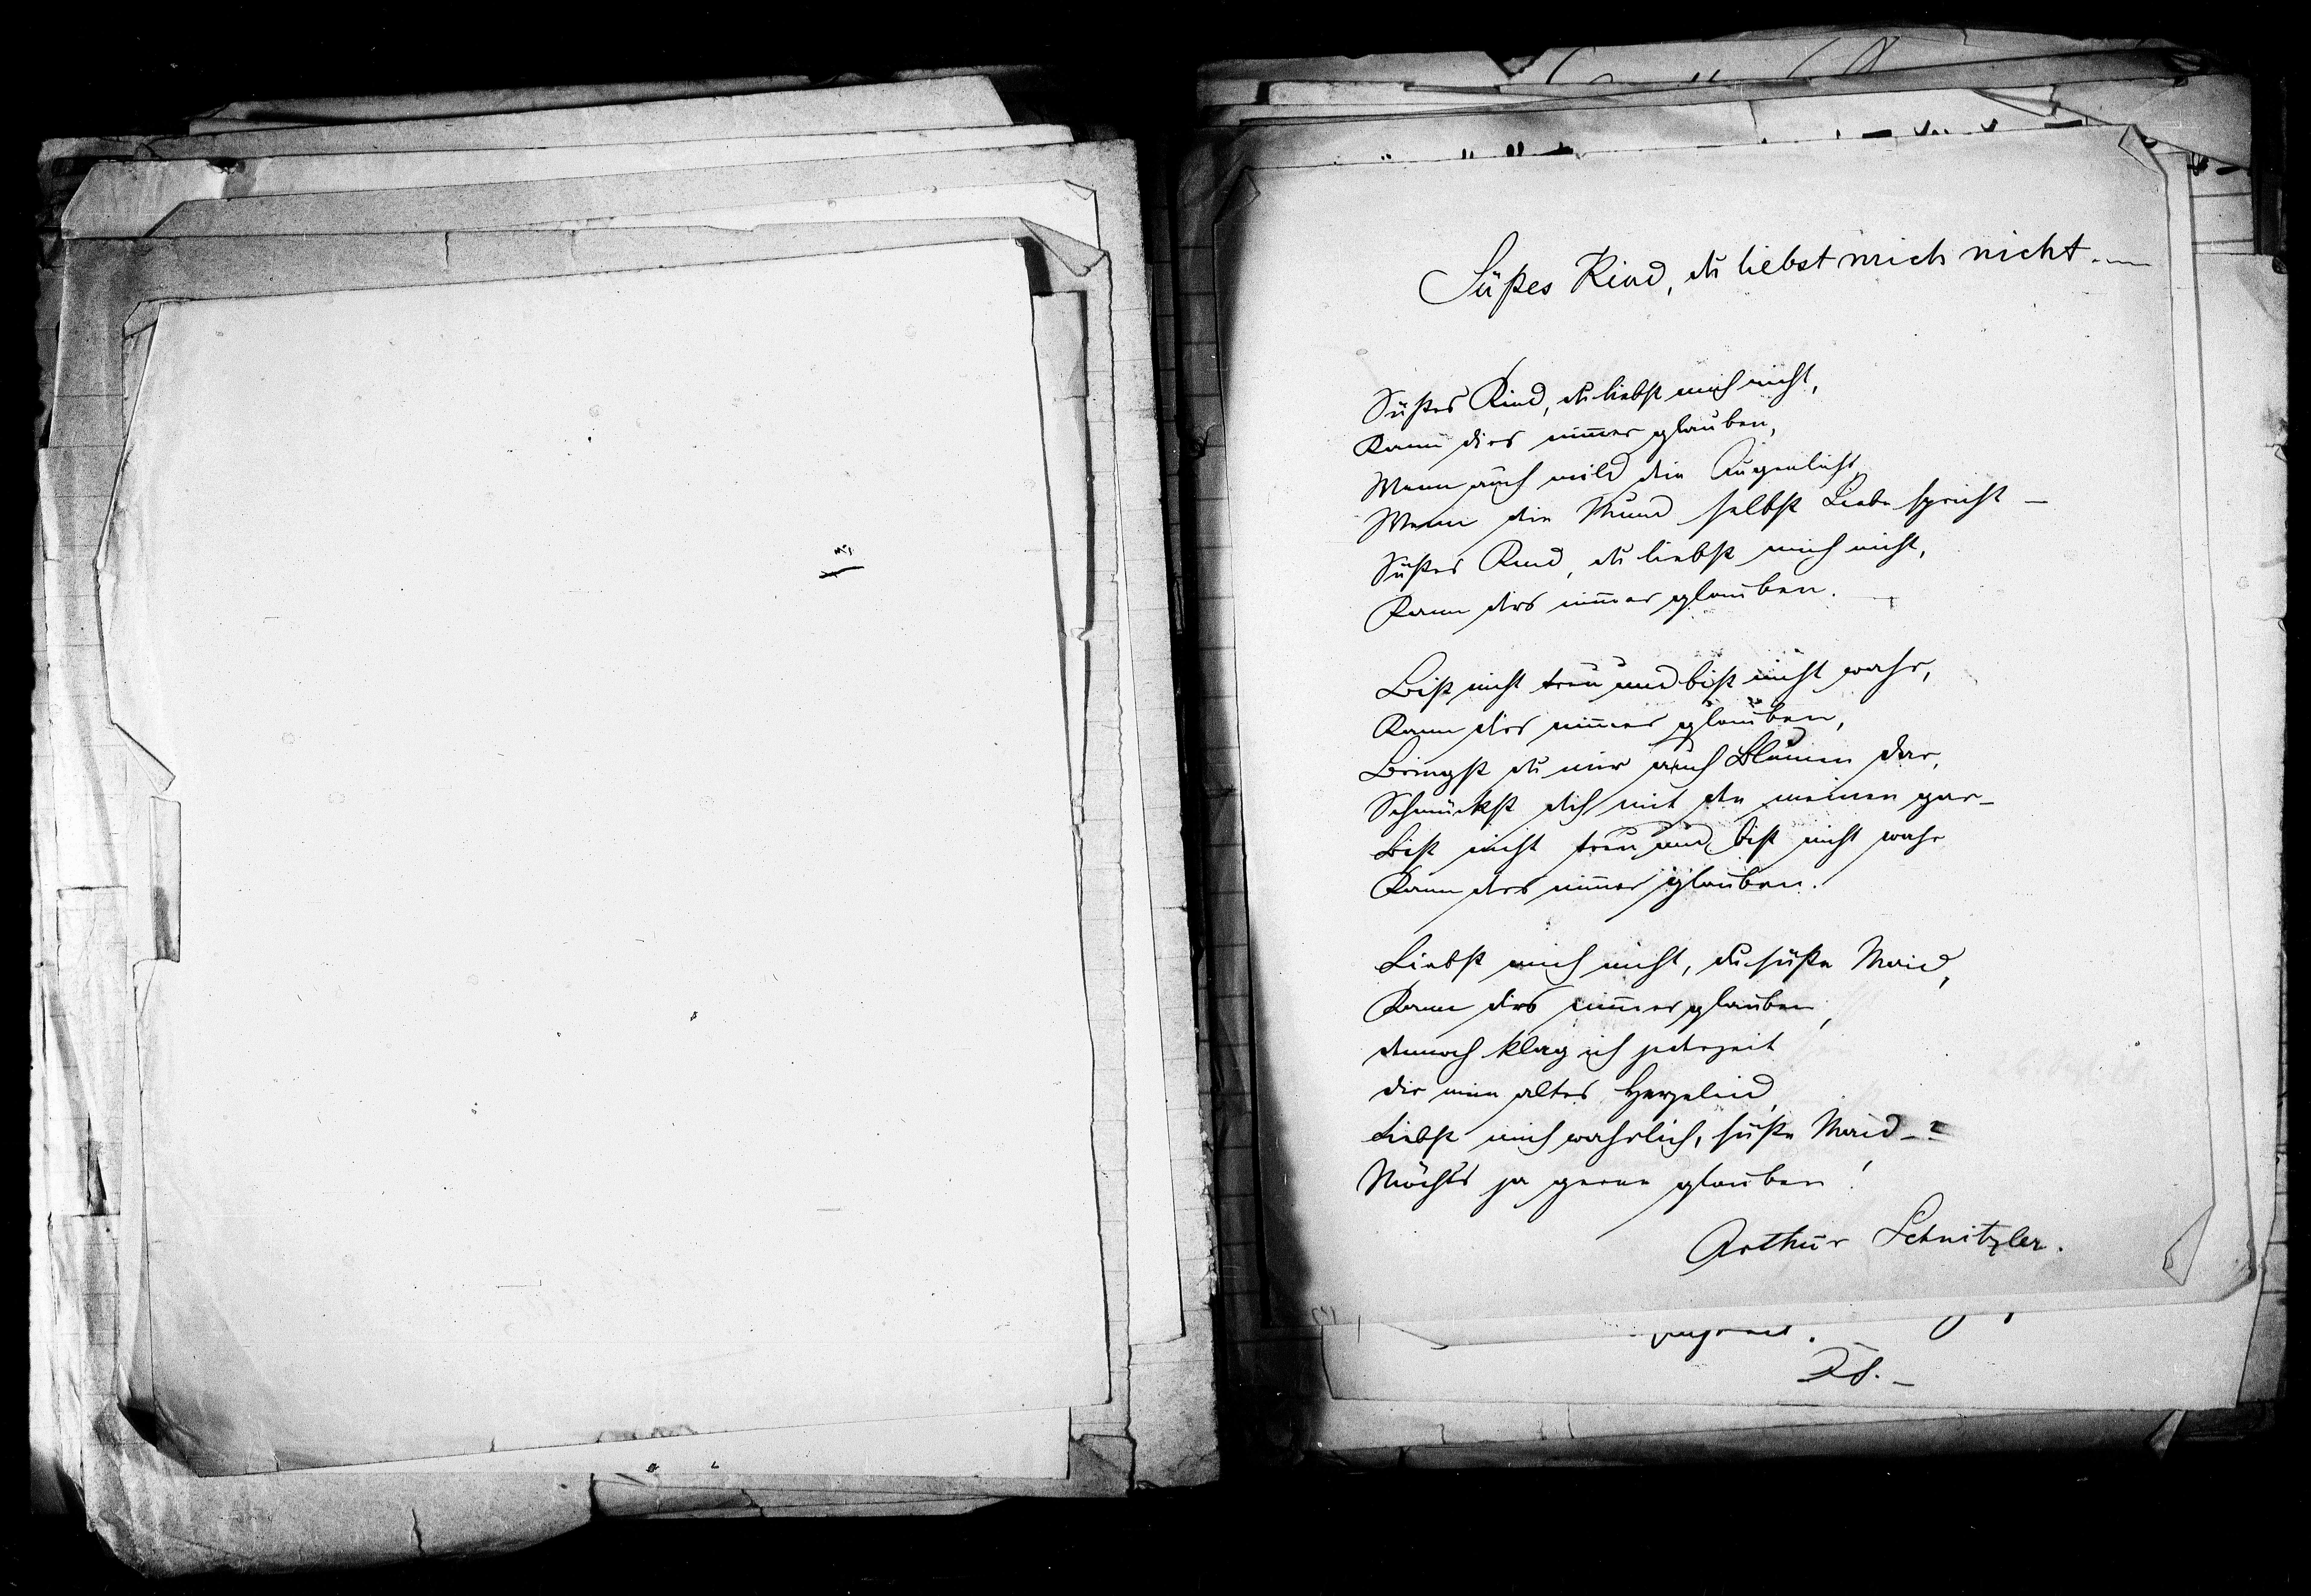 Süßes Kind, du liebst mich nicht. —
Süßes Kind, du liebst mich nicht,
Kann dirs nimmer glauben,
Wenn auch mild dein Augenlicht,
Wenn dein Mund selbst Liebe spricht —
Süßes Kind, du liebst mich nicht,
Kann dirs nimmer glauben. —
Bist nicht treu und bist nicht wahr,
Kann dirs nimmer glauben,
Bringst du mir auch Blumen dar,
Schmückst dich mit den meinen gar —
Bist nicht treu und bist nicht wahr
Kann dirs nimmer glauben.
Liebst mich nicht, du süße Maid,
Kann dirs nimmer glauben,
dennoch klag ich jederzeit
dir mein altes Herzeleid,
Liebst mich wahrlich, süße Maid —?
Möchts ja gerne glauben!
Arthur Schnitzler.